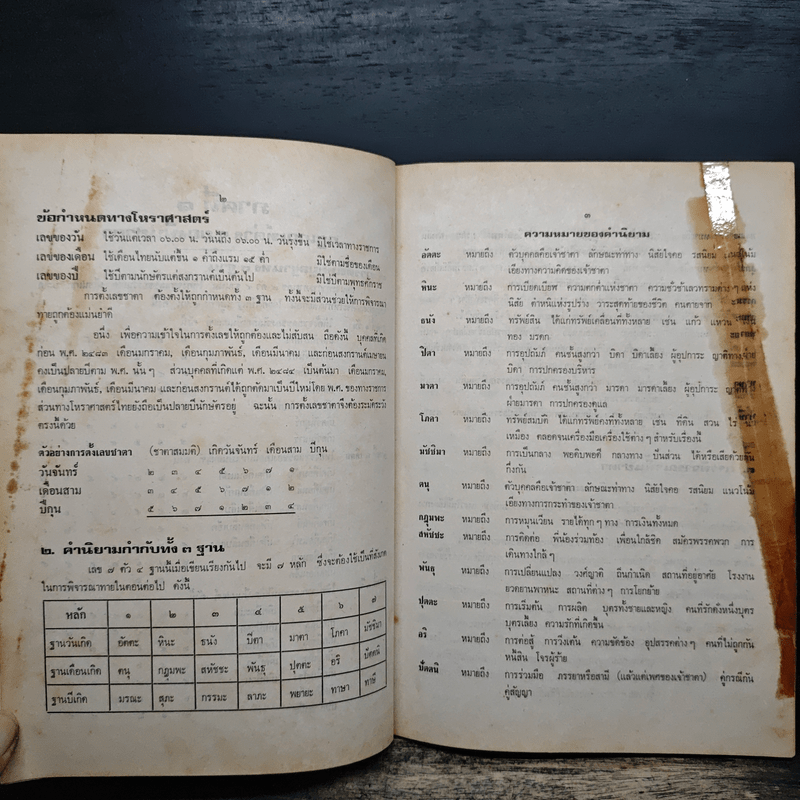 ๒
ข้อกำหนดทางโหราศาสตร์
เลขของวัน ใช้วันแต่เวลา ๐๖.๐๐ น. วันนี้ถึง ๐๖.๐๐ น. วันรุ่งขึ้น มิใช่เวลาทางราชการ
เลขของเดือน ใช้เดือนไทยนับแต่ขึ้น ๑ ค่ำถึงแรม ๑๕ ค่ำ มิใช่ตามชื่อของเดือน
เลขของปี ใช้ปีตามนักษัตรแต่สงกรานต์เป็นต้นไป มิใช่ปีตามพุทธศักราช
การตั้งเลขชาตา ต้องตั้งให้ถูกกำหนดทั้ง ๓ ฐาน ทั้งนี้จะมีส่วนช่วยให้การพิจารณา
ทายถูกต้องแม่นยำดี
อนึ่ง เพื่อความเข้าใจในการตั้งเลขให้ถูกต้องและไม่สับสน ถือดังนี้ บุคคลที่เกิด
ก่อน พ.ศ. ๒๔๘๓ เดือนมกราคม, เดือนกุมภาพันธ์, เดือนมีนาคม และก่อนสงกรานต์เมษายน
คงเป็นปลายปีตาม พ.ศ. นั้น ๆ ส่วนบุคคลที่เกิดแต่ พ.ศ. ๒๔๘๔ เป็นต้นมา เดือนมกราคม,
เดือนกุมภาพันธ์, เดือนมีนาคม และก่อนสงกรานต์ได้ถูกตัดมาเป็นปีใหม่โดย พ.ศ. ของทางราชการ
ส่วนทางโหราศาสตร์ไทยยังถือเป็นปลายปีนักษัตรอยู่ ฉะนั้น การตั้งเลขชาตาจึงต้องระมัดระวัง
ตรงนี้ด้วย
ตัวอย่างการตั้งเลขชาตา (ชาตาสมมติ) เกิดวันจันทร์ เดือนสาม ปีกุน
วันจันทร์ ๒ ๓ ๔ ๕ ๖ ๗ ๑
เดือนสาม ๓ ๔ ๕ ๖ ๗ ๑ ๒
ปีกุน ๕ ๖ ๗ ๑ ๒ ๓ ๔
๒. คำนิยามกำกับทั้ง ๓ ฐาน
เลข ๗ ตัว ๔ ฐานนี้เมื่อเขียนเรียงกันไป จะมี ๗ หลัก ซึ่งจะต้องใช้เป็นที่สังเกต
ในการพิจารณาทายในตอนต่อไป ดังนี้
หลัก ๑ ๒ ๓ ๔ ๕ ๖ ๗
ฐานวันเกิด อัตตะ หินะ ธนัง ปิตา มาตา โภคา มัชฌิมา
ฐานเดือนเกิด ตนุ กฎุมพะ สหัชชะ พันธุ ปุตตะ อริ ปัตตนิ
ฐานปีเกิด มรณะ สุภะ กรรมะ ลาภะ พยายะ ทาษา ทาษี
๓
ความหมายของคำนิยาม
อัตตะ หมายถึง ตัวบุคคลคือเจ้าชาตา ลักษณะท่าทาง นิสัยใจคอ รสนิยม
เอียงทางความคิดของเจ้าชาตา
หินะ หมายถึง การเบียดเบียฬ ความตกต่ำแห่งชาตา ความชั่วช้าเลวทรามต่าง ๆ
นิสัย ตำหนิแห่งรูปร่าง วาระสุดท้ายของชีวิต คนตายจาก
ธนัง หมายถึง ทรัพย์สิน ได้แก่ทรัพย์เคลื่อนที่ทั้งหลาย เช่น แก้ว แหวน
ทอง มรดก
ปิตา หมายถึง การอุปถัมภ์ คนชั้นสูงกว่า บิดา บิดาเลี้ยง ผู้อุปการะ ญาติทาง
บิดา การปกครองบริหาร
มาตา หมายถึง การอุปถัมภ์ คนชั้นสูงกว่า มารดา มารดาเลี้ยง ผู้อุปการะ ญาติ
ฝ่ายมารดา การปกครองดูแล
โภคา หมายถึง ทรัพย์สมบัติ ได้แก่ทรัพย์คงที่ทั้งหลาย เช่น ที่ดิน สวน ไร่
เหมือง ตลอดจนเครื่องมือเครื่องใช้ต่าง ๆ สำหรับเรื่องนี้
มัชฌิมา หมายถึง การเป็นกลาง พอดิบพอดี กลางทาง ปันส่วน ได้หรือเสียด้วย
กึ่งกัน
ตนุ หมายถึง ตัวบุคคลคือเจ้าชาตา ลักษณะท่าทาง นิสัยใจคอ รสนิยม แนวโน้ม
เอียงทางการกระทำของเจ้าชาตา
กฎุมพะ หมายถึง การหมุนเวียน รายได้ทุก ๆ ทาง การเงินทั้งหมด
สหัชชะ หมายถึง การติดต่อ พี่น้องร่วมท้อง เพื่อนใกล้ชิด สมัครพรรคพวก การ
เดินทางใกล้ ๆ
พันธุ หมายถึง การเปลี่ยนแปลง วงศ์ญาติ ถิ่นกำเนิด สถานที่อยู่อาศัย โรงงาน
ยวดยานพาหนะ สถานที่ต่าง ๆ การโยกย้าย
ปุตตะ หมายถึง การเริ่มต้น การผลิต บุตรทั้งชายและหญิง คนที่รักดังหนึ่งบุตร
บุตรเลี้ยง ความรักที่เกิดขึ้น
อริ หมายถึง การต่อสู้ การวิ่งเต้น ความขัดข้อง อุปสรรคต่าง ๆ คนที่ไม่ถูกกัน
หนี้สิน โจรผู้ร้าย
ปัตตนิ หมายถึง การร่วมมือ ภรรยาหรือสามี (แล้วแต่เพศของเจ้าชาตา) คู่กรณีกัน
คู่สัญญา